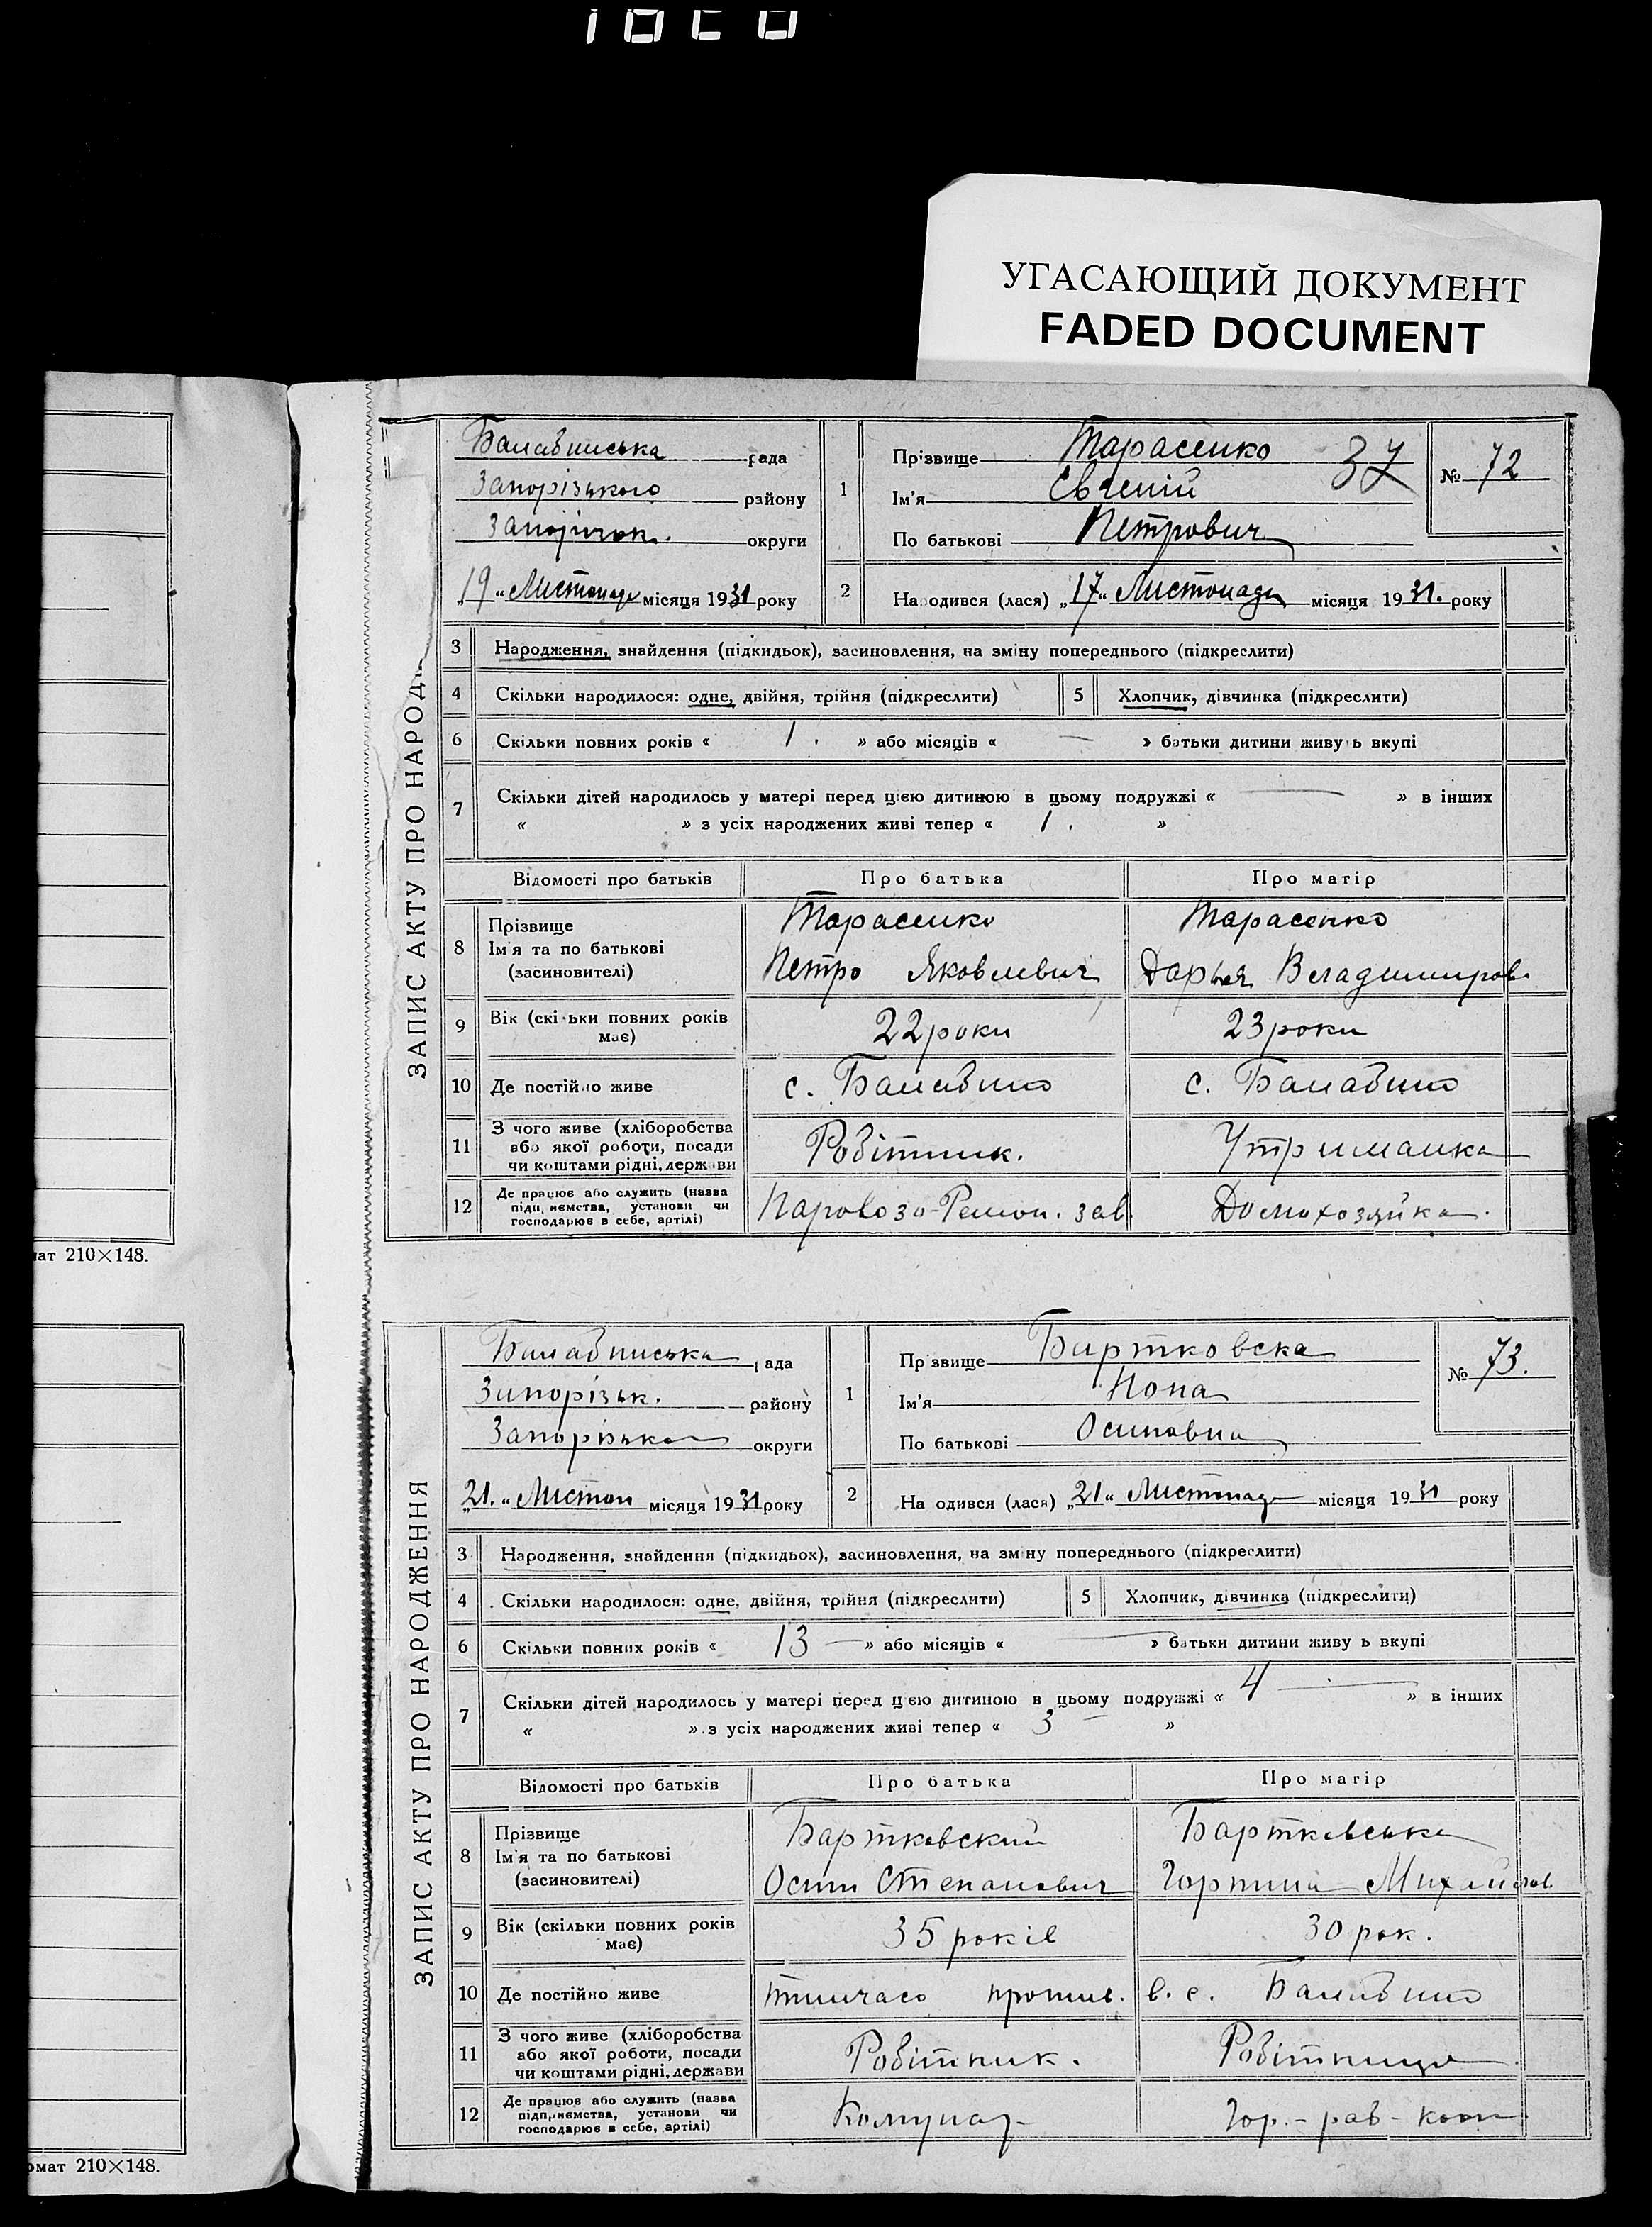 УГАСАЮЩИЙ ДОКУМЕНТ
FADED DOCUMENT
ЗАПИС АКТУ ПРО НАРОД
Балабинська рада
Запорізького району
округи
„19“ Листопада місяця 1931 року
1
Прізвище Тарасенко 37
Ім'я Євгеній
По батькові Петрович
№ 72
2 Народився (лася) „17“ Листопада місяця 1931. року
3 Народження, знайдення (підкидьок), засиновлення, на зміну попереднього (підкреслити)
4 Скільки народилося: одне, двійня, трійня (підкреслити) 5 Хлопчик, дівчинка (підкреслити)
6 Скільки повних років « 1. » або місяців « — » батьки дитини живуть вкупі
7 Скільки дітей народилось у матері перед цією дитиною в цьому подружжі « — » в інших
« » з усіх народжених живі тепер « 1. »
Відомості про батьків Про батька Про матір
8 Прізвище Тарасенко Тарасенко
Ім'я та по батькові Петро Яковлевич Дарья Владимиров.
(засиновителі)
9 Вік (скільки повних років має) 22 роки 23 роки
10 Де постійно живе с. Балабино с. Балабино
11 З чого живе (хліборобства
або якої роботи, посади Робітник. Утриманка
чи коштами рідні, держави
12 Де працює або служить (назва
підприємства, установи чи Паровозо-Ремон. зав. Домохозяйка.
господарює в себе, артілі)
мат 210×148.
ЗАПИС АКТУ ПРО НАРОДЖЕННЯ
Балабинська рада
Запорізьк. району
Запорізька округи
„21.“ Листоп місяця 1931 року
1
Прізвище Бартковска
Ім'я Нона
По батькові Осиповна
№ 73.
2 Народився (лася) „21“ Листопада місяця 1931 року
3 Народження, знайдення (підкидьох), засиновлення, на зміну попереднього (підкреслити)
4 Скільки народилося: одне, двійня, трійня (підкреслити) 5 Хлопчик, дівчинка (підкреслити)
6 Скільки повних років « 13 — » або місяців « — » батьки дитини живуть вкупі
7 Скільки дітей народилось у матері перед цією дитиною в цьому подружжі « 4 — » в інших
« » з усіх народжених живі тепер « 3 — »
Відомості про батьків Про батька Про матір
8 Прізвище Бартковский Бартковська
Ім'я та по батькові Осип Степанович Михайлов.
(засиновителі)
9 Вік (скільки повних років має) 35 років 30 рок.
10 Де постійно живе тимчасо в. с. Балабино
11 З чого живе (хліборобства
або якої роботи, посади Робітник. Робітниця
чи коштами рідні, держави
12 Де працює або служить (назва
підприємства, установи чи Комунар
господарює в себе, артілі)
омат 210×148.